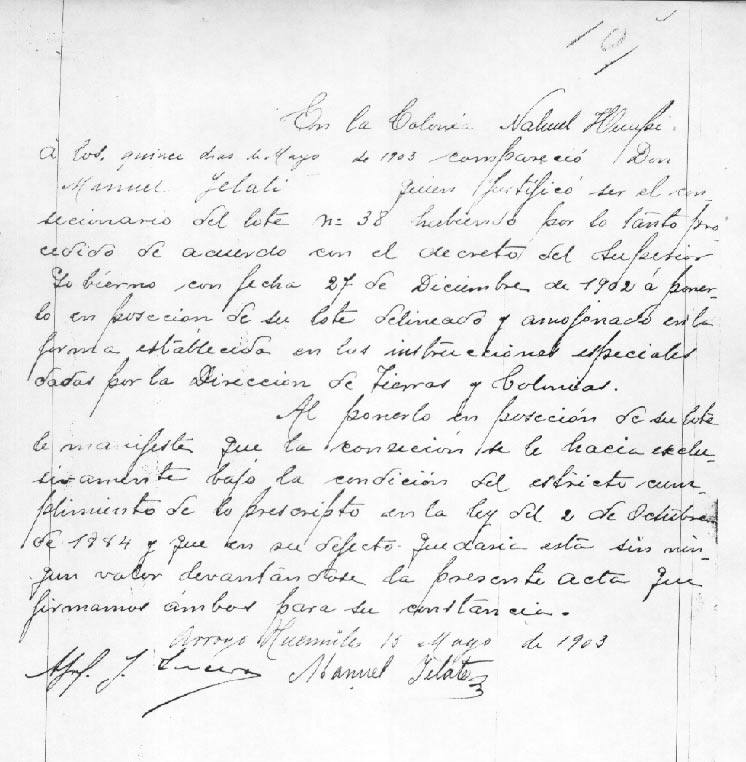 En la Colonia Nahuel Huapi.
á los, quince dias de Mayo de 1903 compareció Don
Manuel Jelati quien justificó ser el con
secionario del lote nº 38 habiendo por lo tanto pro
cedido de acuerdo con el decreto del Superior
Gobierno con fecha 27 de Diciembre de 1902 á poner-
lo en poseción de su lote delineado y amojonado en la
forma establecida en las instrucciones especiales
dadas por la Direccion de Tierras y Colonias.
Al ponerlo en poseción de su lote
le manifesté que la conseción se le hacia exclu-
sivamente bajo la condición del estricto cum-
plimiento de lo prescripto en la ley del 2 de Octubre
de 1884 y que en su defecto quedaria esta sin nin-
gun valor levantándose la presente acta que
firmamos ámbos para su constancia.
Arroyo 15 Mayo de 1903
J. Manuel